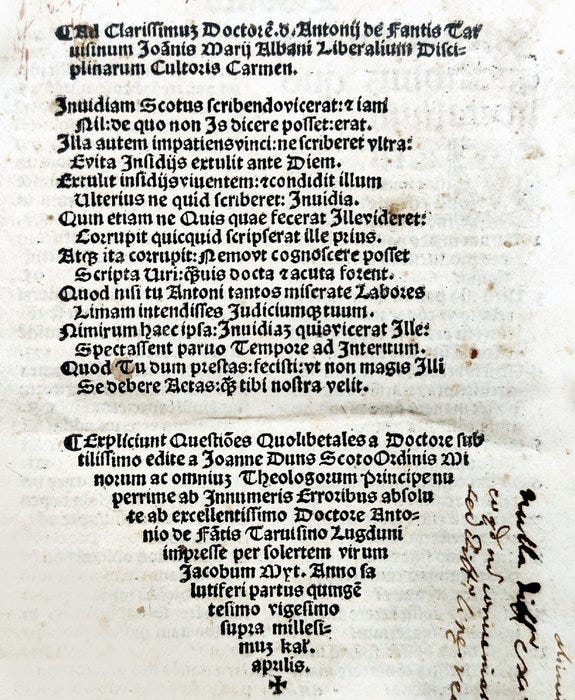 ¶Ad Clarissimuz Doctorē.d. Antonij de Fantis Tar
uisinum Joānis Marij Albani Liberalium Disci-
plinarum Cultoris Carmen.
Inuidiam Scotus scribendo vicerat: ⁊ iam
Nil: de quo non Is dicere posset: erat.
Illa autem impatiens vinci: ne scriberet vltra:
Euita Insidijs extulit ante Diem.
Extulit insidijs viuentem: ⁊ condidit illum
Ulterius ne quid scriberet: Inuidia.
Quin etiam ne Quis quae fecerat Ille videret:
Corrupit quicquid scripserat ille prius.
Atqꝫ ita corrupit: Nemo vt cognoscere posset
Scripta Uiri: q̄ꝫuis docta ⁊ acuta forent.
Quod nisi tu Antoni tantos miserate Labores
Limam intendisses Judiciumqꝫ tuum.
Nimirum haec ipsa: Inuidiaꝫ quis vicerat Ille:
Spectassent paruo Tempore ad Interitum.
Quod Tu dum prestas: fecisti: vt non magis Illi
Se debere Aetas: q̄ꝫ tibi nostra velit.
¶Expliciunt Questiōes Quolibetales a Doctore sub
tilissimo edite a Joanne Duns Scoto Ordinis Mi
norum ac omniuꝫ Theologorum Principe nu
perrime ab Innumeris Erroribus absolu
te ab excellentissimo Doctore Anto-
nio de Fātis Taruisino Lugduni
impresse per solertem virum
Jacobum Myt. Anno sa
lutiferi partus quingē
tesimo vigesimo
supra millesi-
muꝫ kal.
aprilis.
✠
nulla